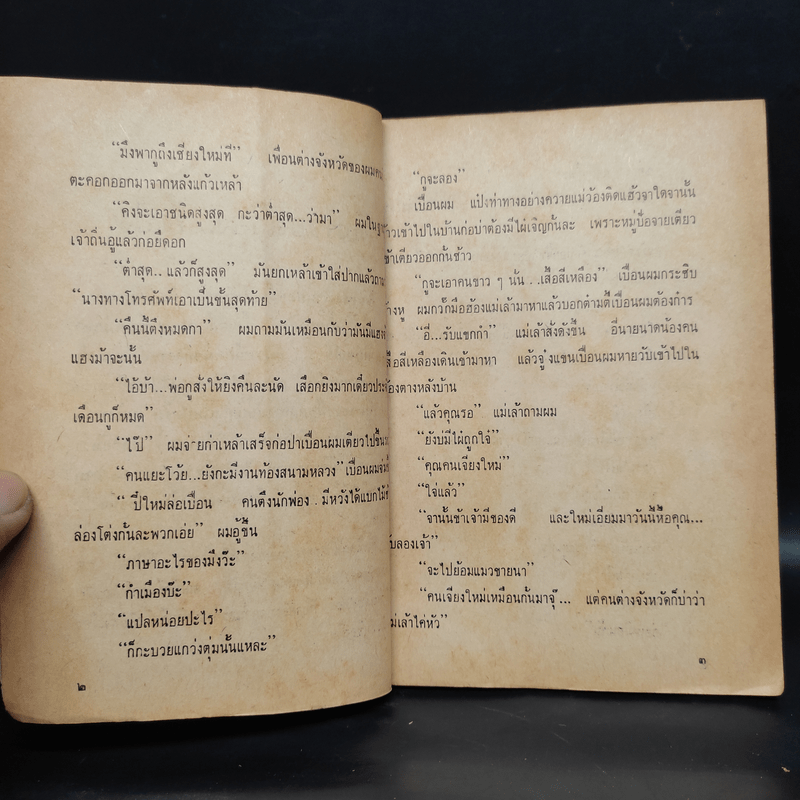 “มึงพากูถึงเชียงใหม่ที” เพื่อนต่างจังหวัดของผม
ตะคอกออกมาจากหลังแก้วเหล้า
“คิงจะเอาชนิดสูงสุด กะว่าต่ำสุด...ว่ามา” ผมใน
เจ้าถิ่นอู้แล้วก่อยืดอก
“ต่ำสุด.. แล้วก็สูงสุด” มันยกเหล้าเข้าใส่ปากแล้ว
“นางทางโทรศัพท์เอาเป็นขั้นสุดท้าย”
“คืนนี้ตึงหมดกา” ผมถามมันเหมือนกับว่ามันมีแฮง
แฮงม้าจะนั้น
“ไอ้บ้า...พ่อกูสั่งให้ยิงคืนละนัด เสือกยิงมากเดี๋ยว
เดือนกูก็หมด”
“ไป๊” ผมจ่ายก่าเหล้าเสร็จก่อปาเปื่อนผมเตียวไปขึ้น
“คนแยะโว้ย...ยังกะมีงานท้องสนามหลวง” เปื่อนผม
“ปี๋ใหม่ล่อเปื่อน คนตึงนักพ่อง . มีหวังได้แบกไม้
ล่องโต่งกั๋นละพวกเอ่ย” ผมอู้ขึ้น
“ภาษาอะไรของมึงว๊ะ”
“กำเมืองบ๊ะ”
“แปลหน่อยปะไร”
“ก็กะบวยแกว่งตุ่มนั้นแหละ”
๒
“กูจะลอง”
เปื่อนผม แป๋งท่าทางอย่างควายแม่ว้องติดแฮ้วจาใดจานั้น
เข้าไปในบ้านก่อบ่าต้องมีไผ่เจิญกั๋นละ เพราะหมู่บ่อจายเตียว
เข้าเตียวออกกันซ้าว
“กูจะเอาคนขาว ๆ นั้น . . .เสื้อสีเหลือง” เปื่อนผมกระซิบ
หู ผมกวั๊กมือฮ้องแม่เล้ามาหาแล้วบอกตามตี้เปื่อนผมต้องก๋าร
“อี่...รับแขกกำ” แม่เล้าสั่งดังขึ้น อี่นายนาดน้องคน
เสื้อสีเหลืองเดินเข้ามาหา แล้วจู๋งแขนเปื่อนผมหายวับเข้าไปใน
ห้องตางหลังบ้าน
“แล้วคุณรอ” แม่เล้าถามผม
“ยังบ่มีไผ่ถูกใจ๋”
“คุณคนเจียงใหม่”
“ใจ่แล้ว”
“จานั้นข้าเจ้ามีของดี และใหม่เอี่ยมมาวันนี้หื้อคุณ...
ลองเจ้า”
“จะไปย้อมแมวขายนา”
“คนเจียงใหม่เหมือนกั๋นมาจุ๊... แต่คนต่างจังหวัดก็บ่าว่า
แม่เล้าไค่หัว”
๓